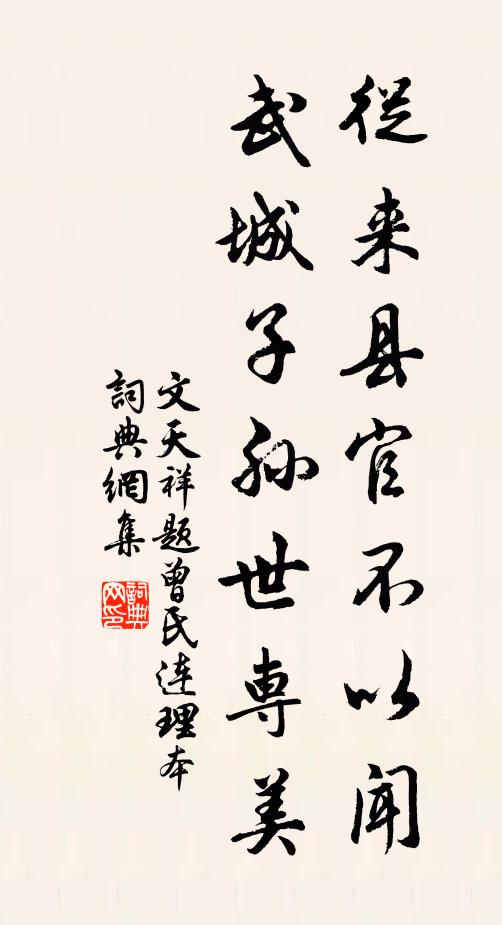 從来县官不以闻
武城子孙世専美
文天祥題曾氏連理本
詞典網集
詞典网印